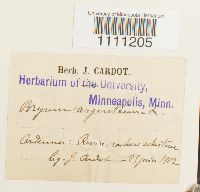 University of Minnesota Herbarium
1111205
Herb. J. CARDOT.
Herbarium of the University,
Minneapolis, Minn.
Bryum argenteum L.
Ardennes: Revin, rochers
leg. J. Cardot